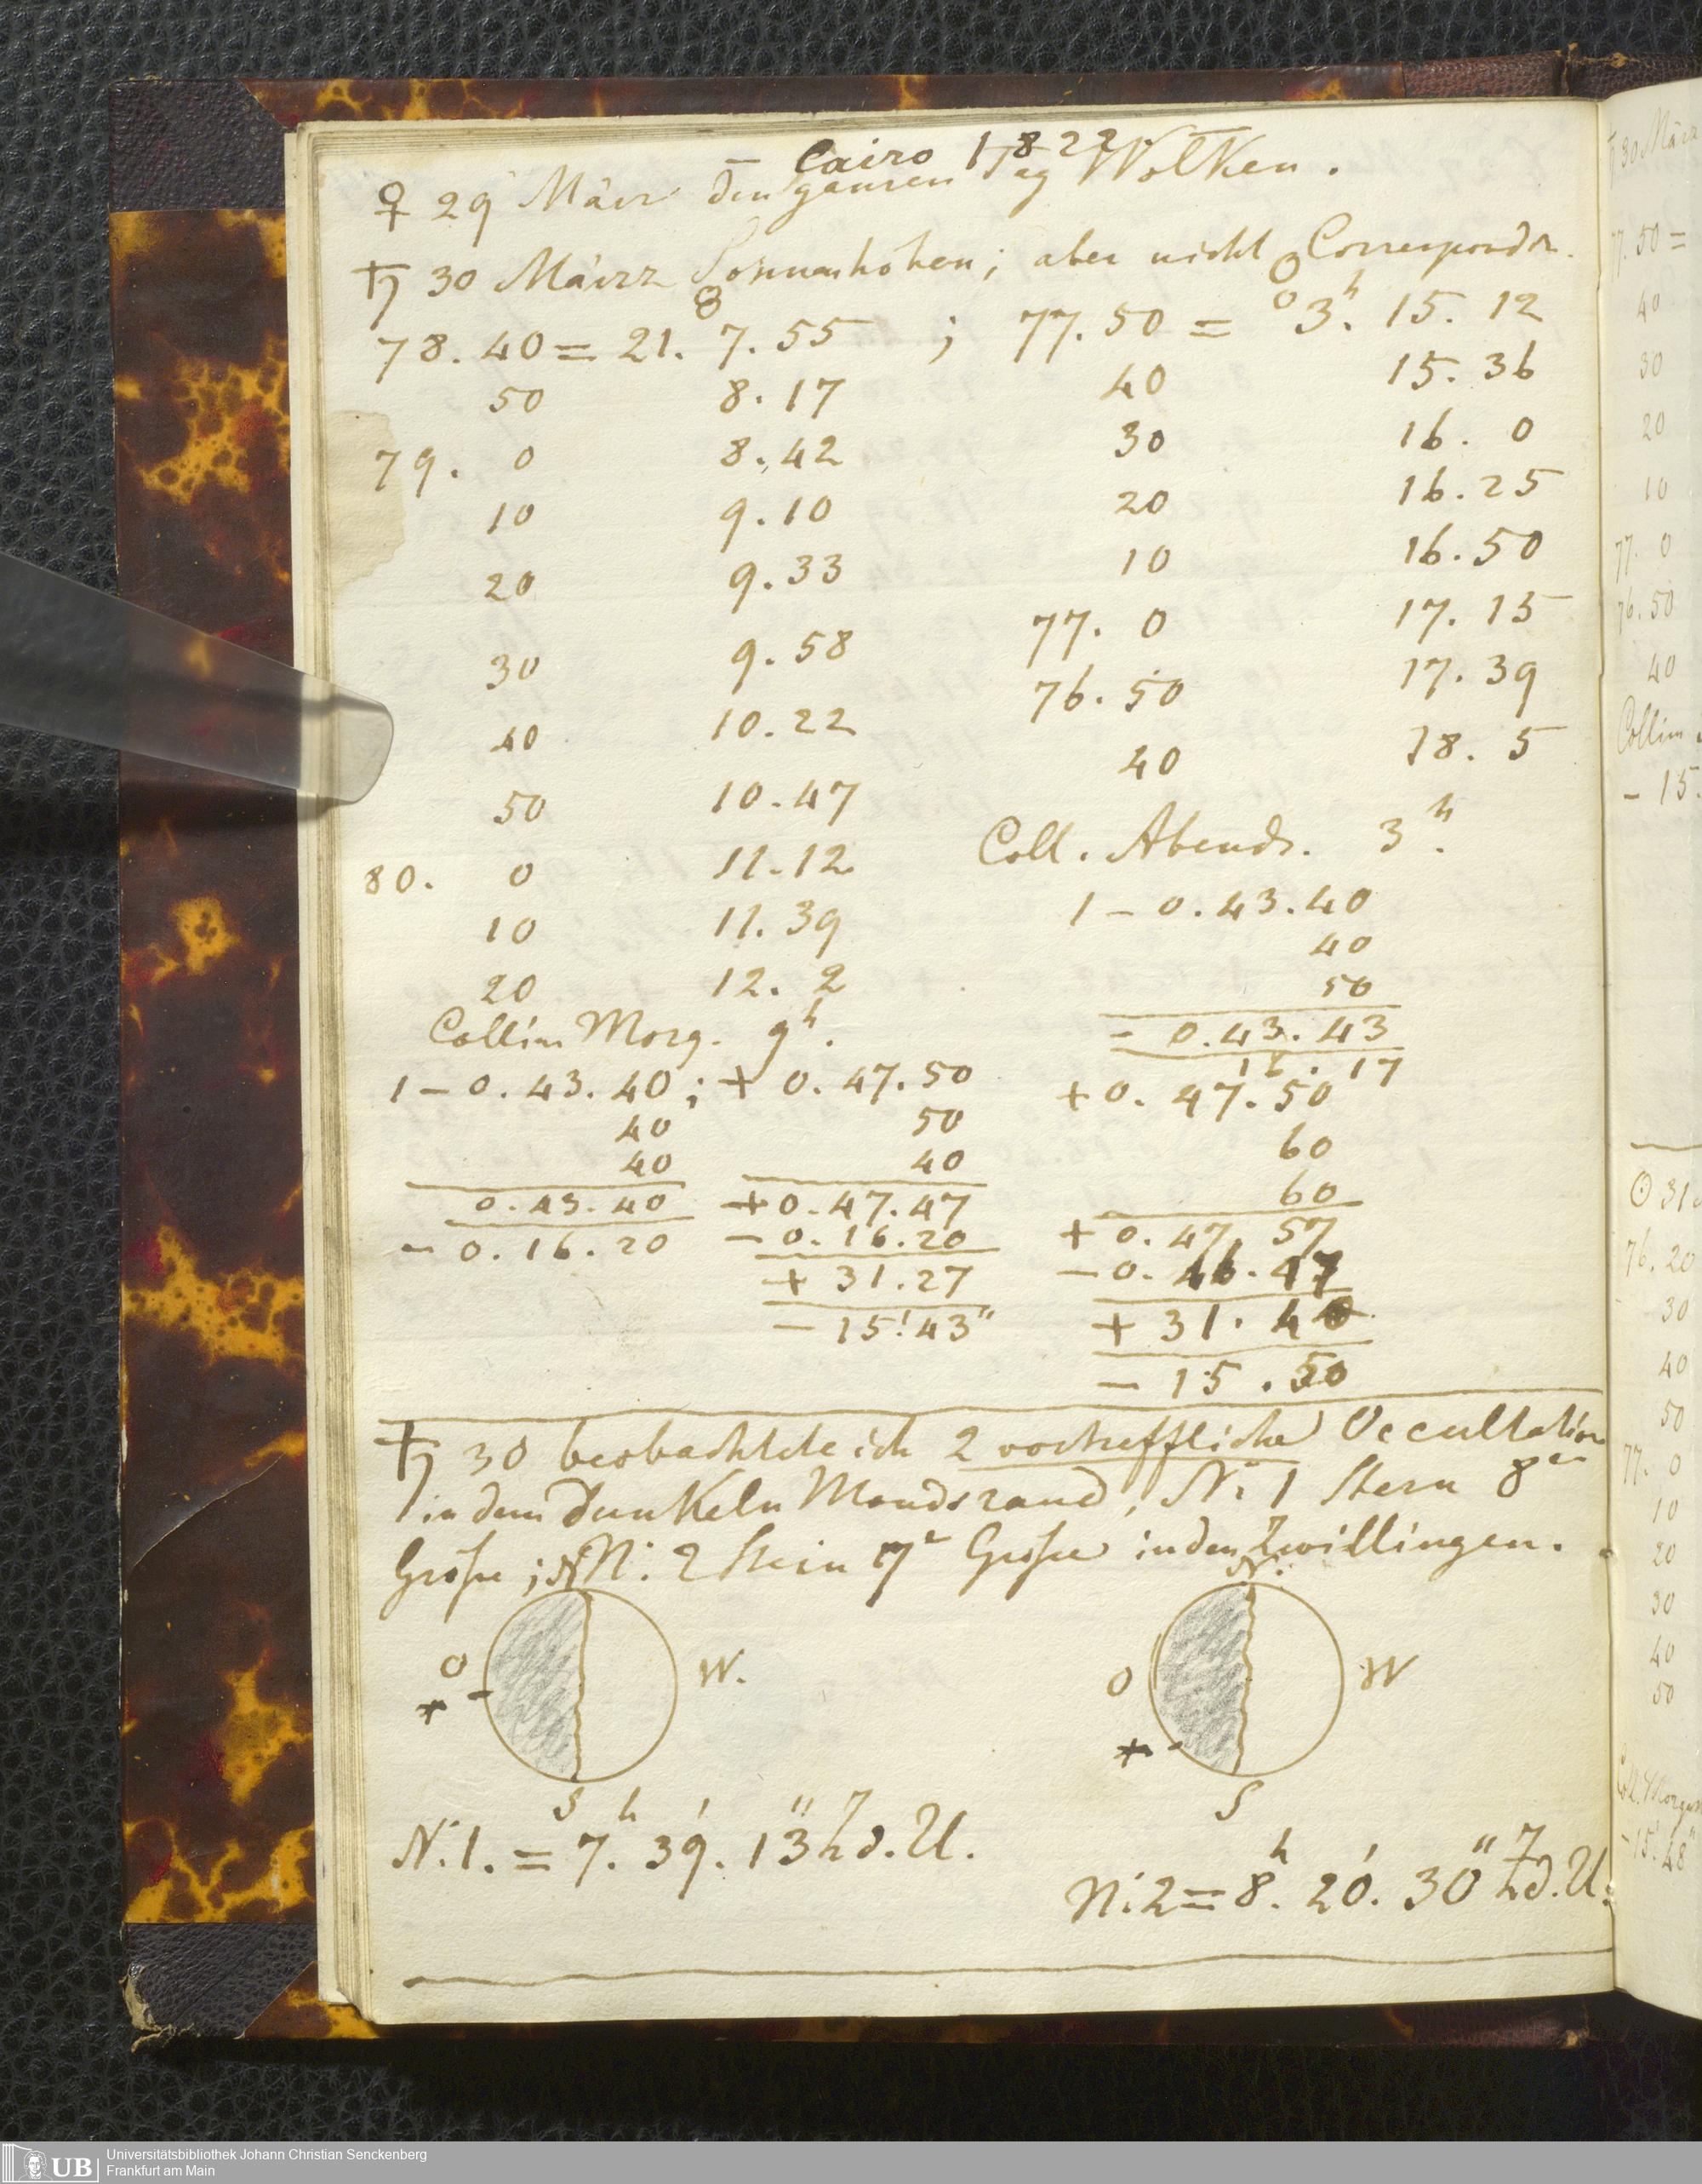 Cairo 1822
♀ 29 März den ganzen Tag Wolken.
♄ 30 März Sonnenhöhen; aber nicht Correspondr.
78.40 = 21. 7.55 ; 77.50 = 0 3h. 15. 12
50 8.17 40 15.36
79. 0 8.42 30 16. 0
10 9.10 20 16.25
20 9.33 10 16.50
30 9.58 77. 0 17.15
40 10.22 76.50 17.39
50 10.47 40 18. 5
80. 0 11.12
10 11.39
20 12. 2
Collim Morg. 9h.
1 – 0.43.40; + 0.47.50
40 50
40 40
0.43.40 +0.47.47
– 0.16.20 – 0.16.20
+ 31.27
– 15' 43"
Coll. Abends. 3h.
1 – 0.43.40
40
50
– 0.43.43
16.17
+0.47.50
60
60
+ 0.47.57
– 0. 16.17
+ 31.40
– 15.50
♄ 30 beobachtete ich 2 vortreffliche Occultation
in dem dunkeln Mondsrand, N: 1 Stern 8er
Größe; N: 2 Stern 7r Größe in den Zwillingen.
N N:
O W. O W
* *
S S
N:1. = 7h. 39'. 13" Z d. U.
N:2 = 8h. 20'. 30" Z d. U.
♄ 30 März
77.50 =
40
30
20
10
77. 0
76.50
40
Collim
– 15.
☉ 31
76.20
30
40
50
77. 0
10
20
30
40
50
Coll. Morgens
– 15' 48"
UB
Universitätsbibliothek Johann Christian Senckenberg
Frankfurt am Main